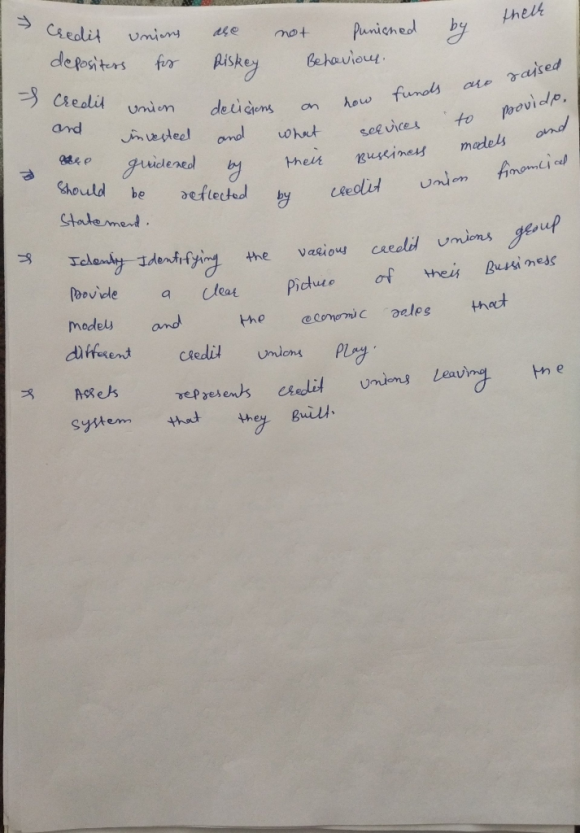 ⇒ Credit unions are not punished by their
depositers for Riskey Behaviour.
⇒ Credit union decisions on how funds are raised
and invested and what services to provide.
are guidened by their Bussiness models and
⇒ should be reflected by credit union financial
Statement.
⇒ Identifying the various credit unions group
provide a clear picture of their Bussiness
models and the economic roles that
different credit unions Play.
⇒ Assets represents credit unions Leaving the
system that they Built.